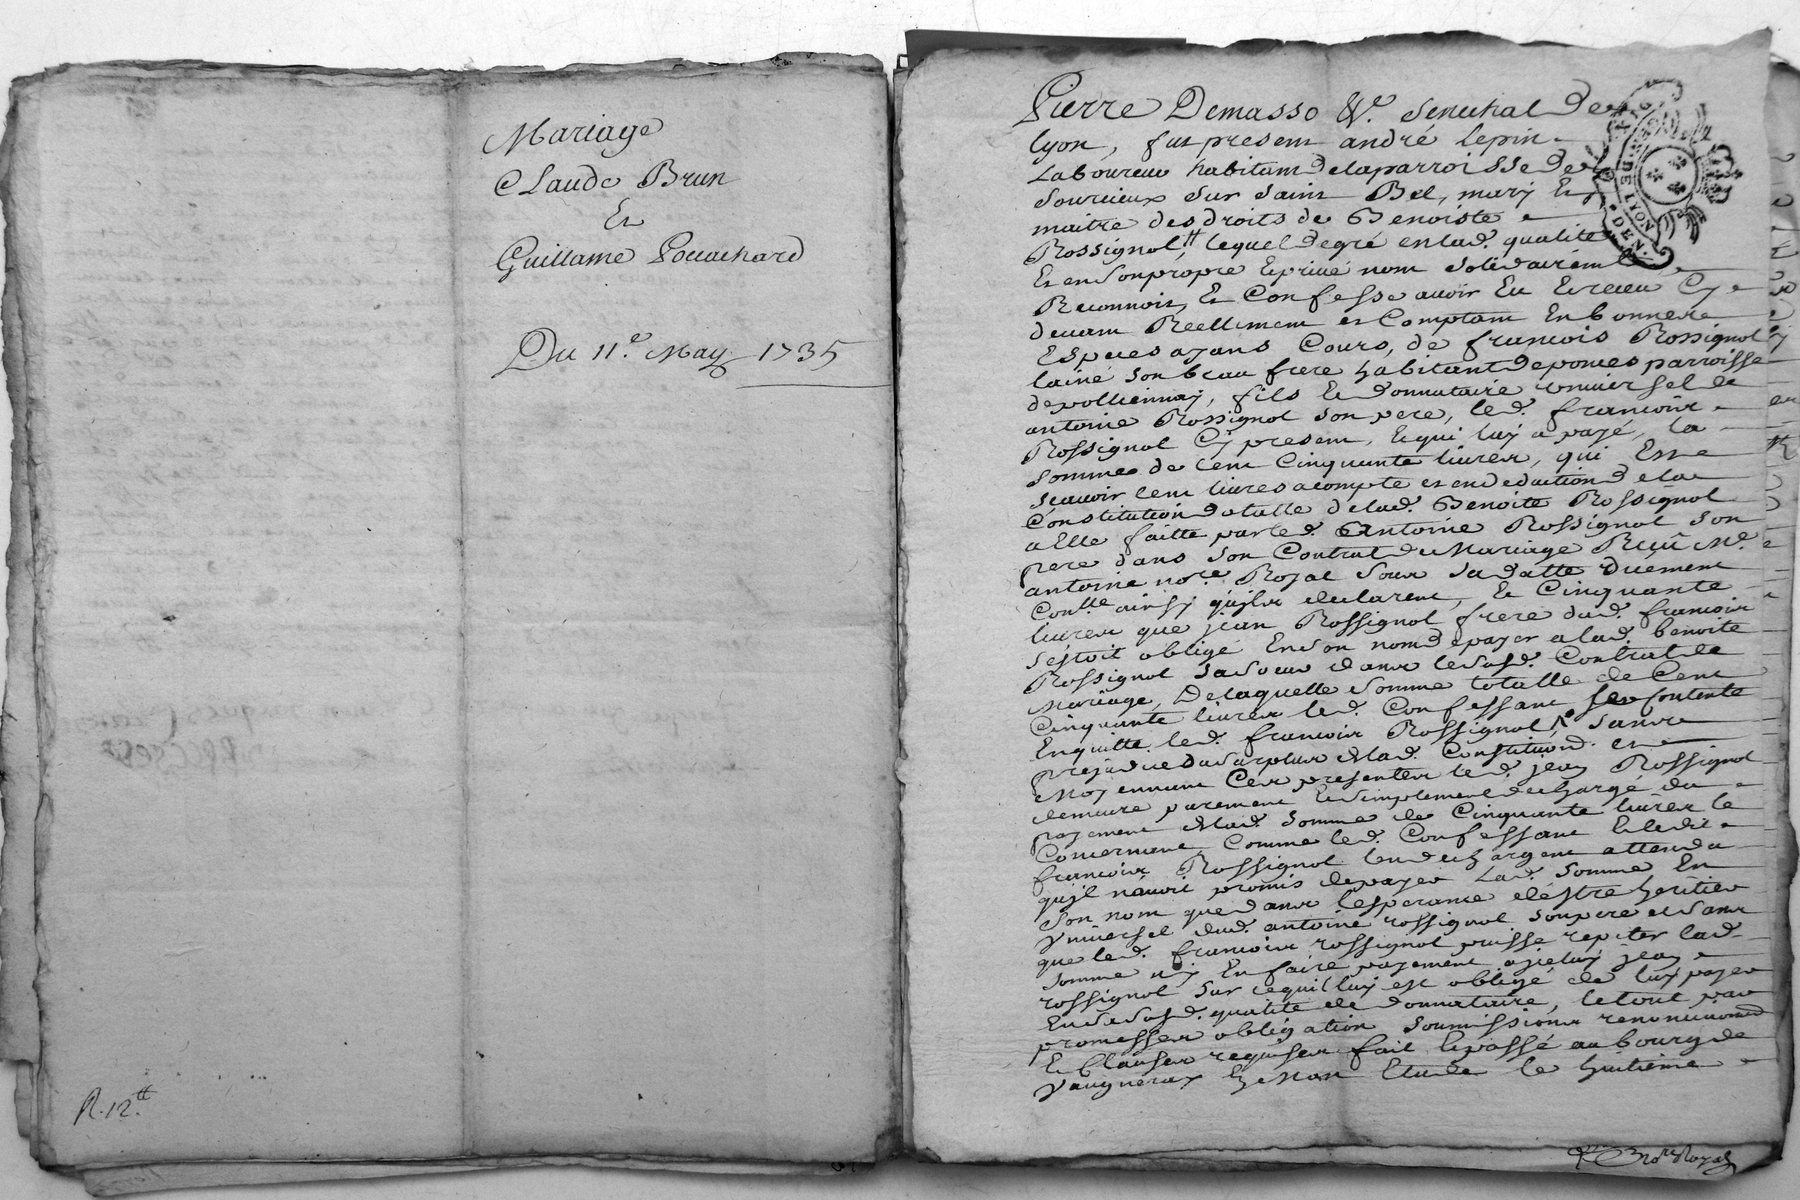 Mariage
Claude Brun
Et
Guillame Pouachard
Du 11.e May 1735
R. 12.tt
Pierre Demasso &c. Senechal de
lyon, fut present andré lepin
Laboureur habitant delaparroisse de
Sourcieux sur Saint Bel, mary Et
maitre des droits de Benoiste
Rossignol, lequel degré enlad. qualité
Et en Sonpropre Eprivé nom Solidairement
Reconnoit, Et Confesse avoir Eu Ereceu Cy
devant Reellement et Comptant En bonnere
Especes ayans Cours, de francois Rossignol
lainé Son beau frere habitant deponcs parroisse
devolliennay, fils Et donnataire universel de
antoine Rossignol Son pere, led. francoir
Rossignol Cy present, Equi luy a payé, la
Somme de Cent Cinquante livres, qui Est
Scavoir Cent livres acompte et endeduction dela
Constitution dotalle delad. Benoite Rossignol
a Elle faitte parled. Antoine Rossignol Son
pere dans Son Contrat de Mariage Reçû Me.
antoine nore. Royal Sour Sadatte duement
Conlle. ainsy quiler declarent, Et Cinquante
livrer que jean Rossignol frere dud. francoir
Sestoit obligé En son nom depayer alad. benoite
Rossignol Sa Soeur danr le Susd. Contrat de
Mariage, Delaquelle Somme totalle de Cent
Cinquante livrer led. Confessant Ser Contente
Enquitte led. francoir Rossignol, Sanr
prejudice du Surplur delad. Constitution. et
Moyennant Cer presenter led. jean Rossignol
demeure purement Et Simplement dechargé du
payement delad. Somme de Cinquante livrer le
Concernant, Comme led. Confessant Et ledit
francoir Rossignol len dechargent attendu
quil navoit promis depayer Lad. Somme En
Son nom que danr lesperance déstre heritier
Vniversel dud. antoine rossignol Sonpere et Sanr
que led. francoir rossignol puisse repeter lad.
Somme ny En faire payement ajceluy jean
rossignol Sur cequil luy est obligé de luy payer
En Sa Susd. qualité de donnataire, letout par
promesser obligation Soumissionr renonciationr
Et Clauser requiser fait Epassé au bourg de
Vaugneray En Mon Etude le huitieme
nore. Royal